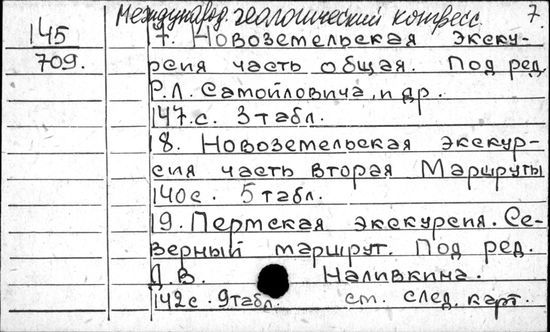 Международ. геологический конгресс. 7.
145
709.
17. Новоземельская экску-
рсия часть общая. Под ред.
Р.Л. Самойловича, и др.
147.с. 3 табл.
18. Новоземельская экскур-
сия часть вторая Маршруты
140с. 5 табл.
19. Пермская экскурсия. Се-
верный маршрут. Под ред.
Д.В. Наливкина.
142с. 9табл. см. след. карт.